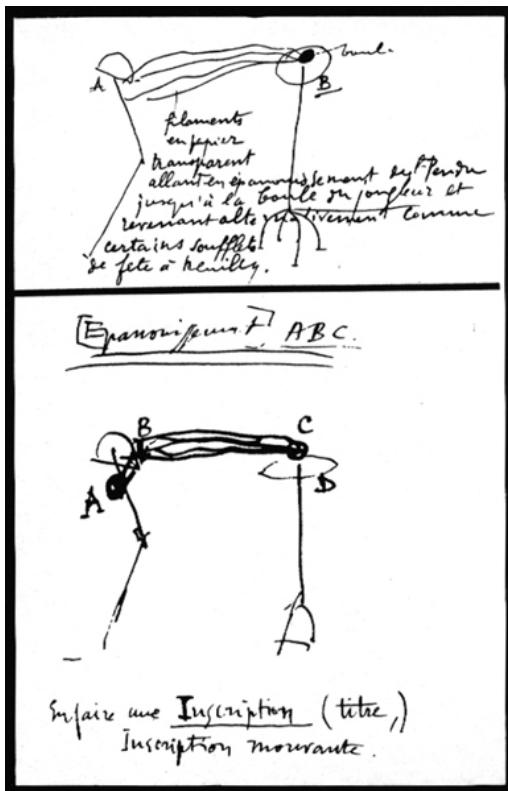 A
boule
B
filaments
en papier
transparent
allant en épanouissement du Pendu
jusqu'à la boule du jongleur et
revenant alternativement comme
certains soufflets
de fete à Neuilly.
[Epanouissement] ABC.
B
C
A
D
En faire une Inscription (titre,)
Inscription mouvante.